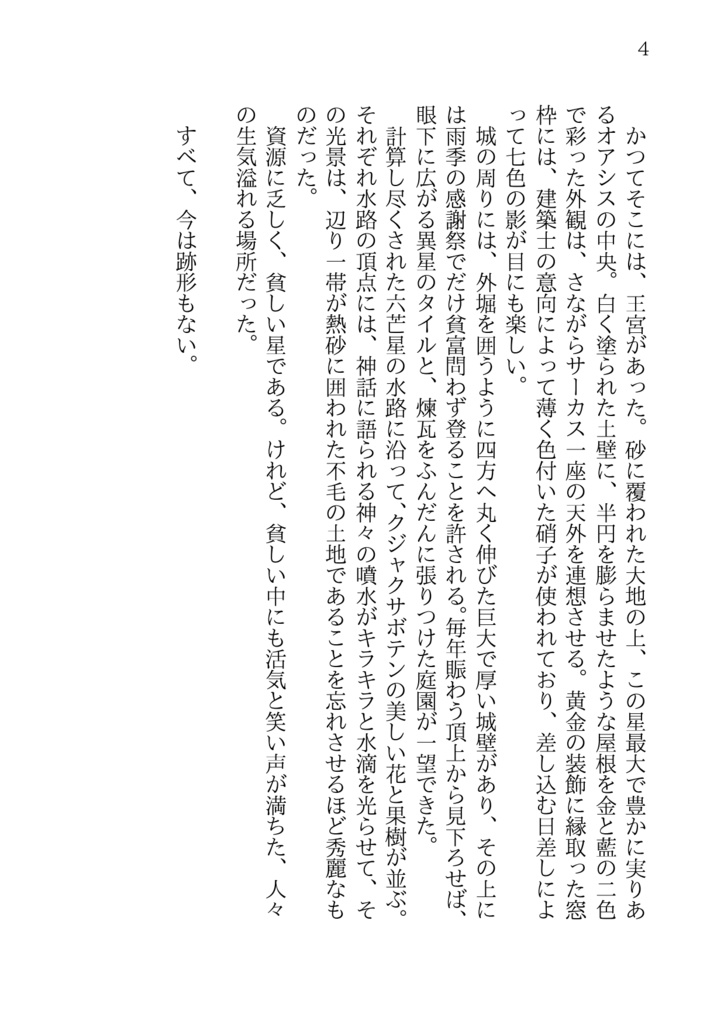 4
かつてそこには、王宮があった。砂に覆われた大地の上、この星最大で豊かに実りあ
るオアシスの中央。白く塗られた土壁に、半円を膨らませたような屋根を金と藍の二色
で彩った外観は、さながらサーカス一座の天外を連想させる。黄金の装飾に縁取った窓
枠には、建築士の意向によって薄く色付いた硝子が使われており、差し込む日差しによ
って七色の影が目にも楽しい。
城の周りには、外堀を囲うように四方へ丸く伸びた巨大で厚い城壁があり、その上に
は雨季の感謝祭でだけ貧富問わず登ることを許される。毎年賑わう頂上から見下ろせば、
眼下に広がる異星のタイルと、煉瓦をふんだんに張りつけた庭園が一望できた。
計算し尽くされた六芒星の水路に沿って、クジャクサボテンの美しい花と果樹が並ぶ。
それぞれ水路の頂点には、神話に語られる神々の噴水がキラキラと水滴を光らせて、そ
の光景は、辺り一帯が熱砂に囲われた不毛の土地であることを忘れさせるほど秀麗なも
のだった。
資源に乏しく、貧しい星である。けれど、貧しい中にも活気と笑い声が満ちた、人々
の生気溢れる場所だった。
すべて、今は跡形もない。